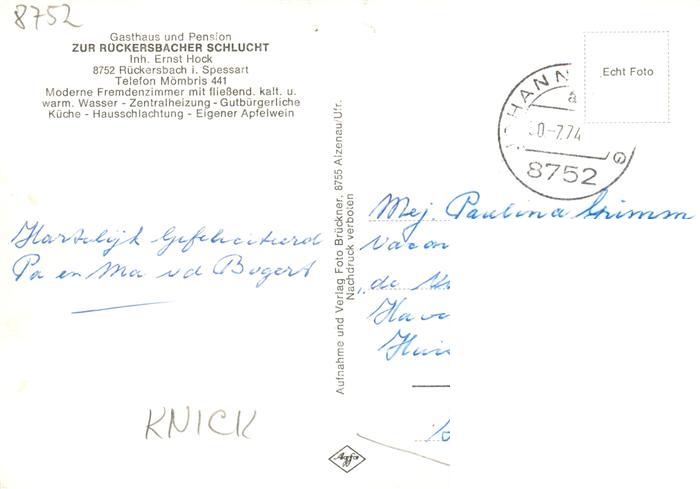 8752
Gasthaus und Pension
ZUR RÜCKERSBACHER SCHLUCHT
Inh. Ernst Hock
8752 Rückersbach i. Spessart
Telefon Mömbris 441
Moderne Fremdenzimmer mit fließend. kalt. u.
warm. Wasser - Zentralheizung - Gutbürgerliche
Küche - Hausschlachtung - Eigener Apfelwein
Hartelijk Gefeliciteerd
Pa en Ma vd Bogert
KNICK
Aufnahme und Verlag Foto Brückner, 8755 Alzenau/Ufr.
Nachdruck verboten
Agfa
Echt Foto
HANN
a
0-7.74
G
8752
Mej. Paulina
de